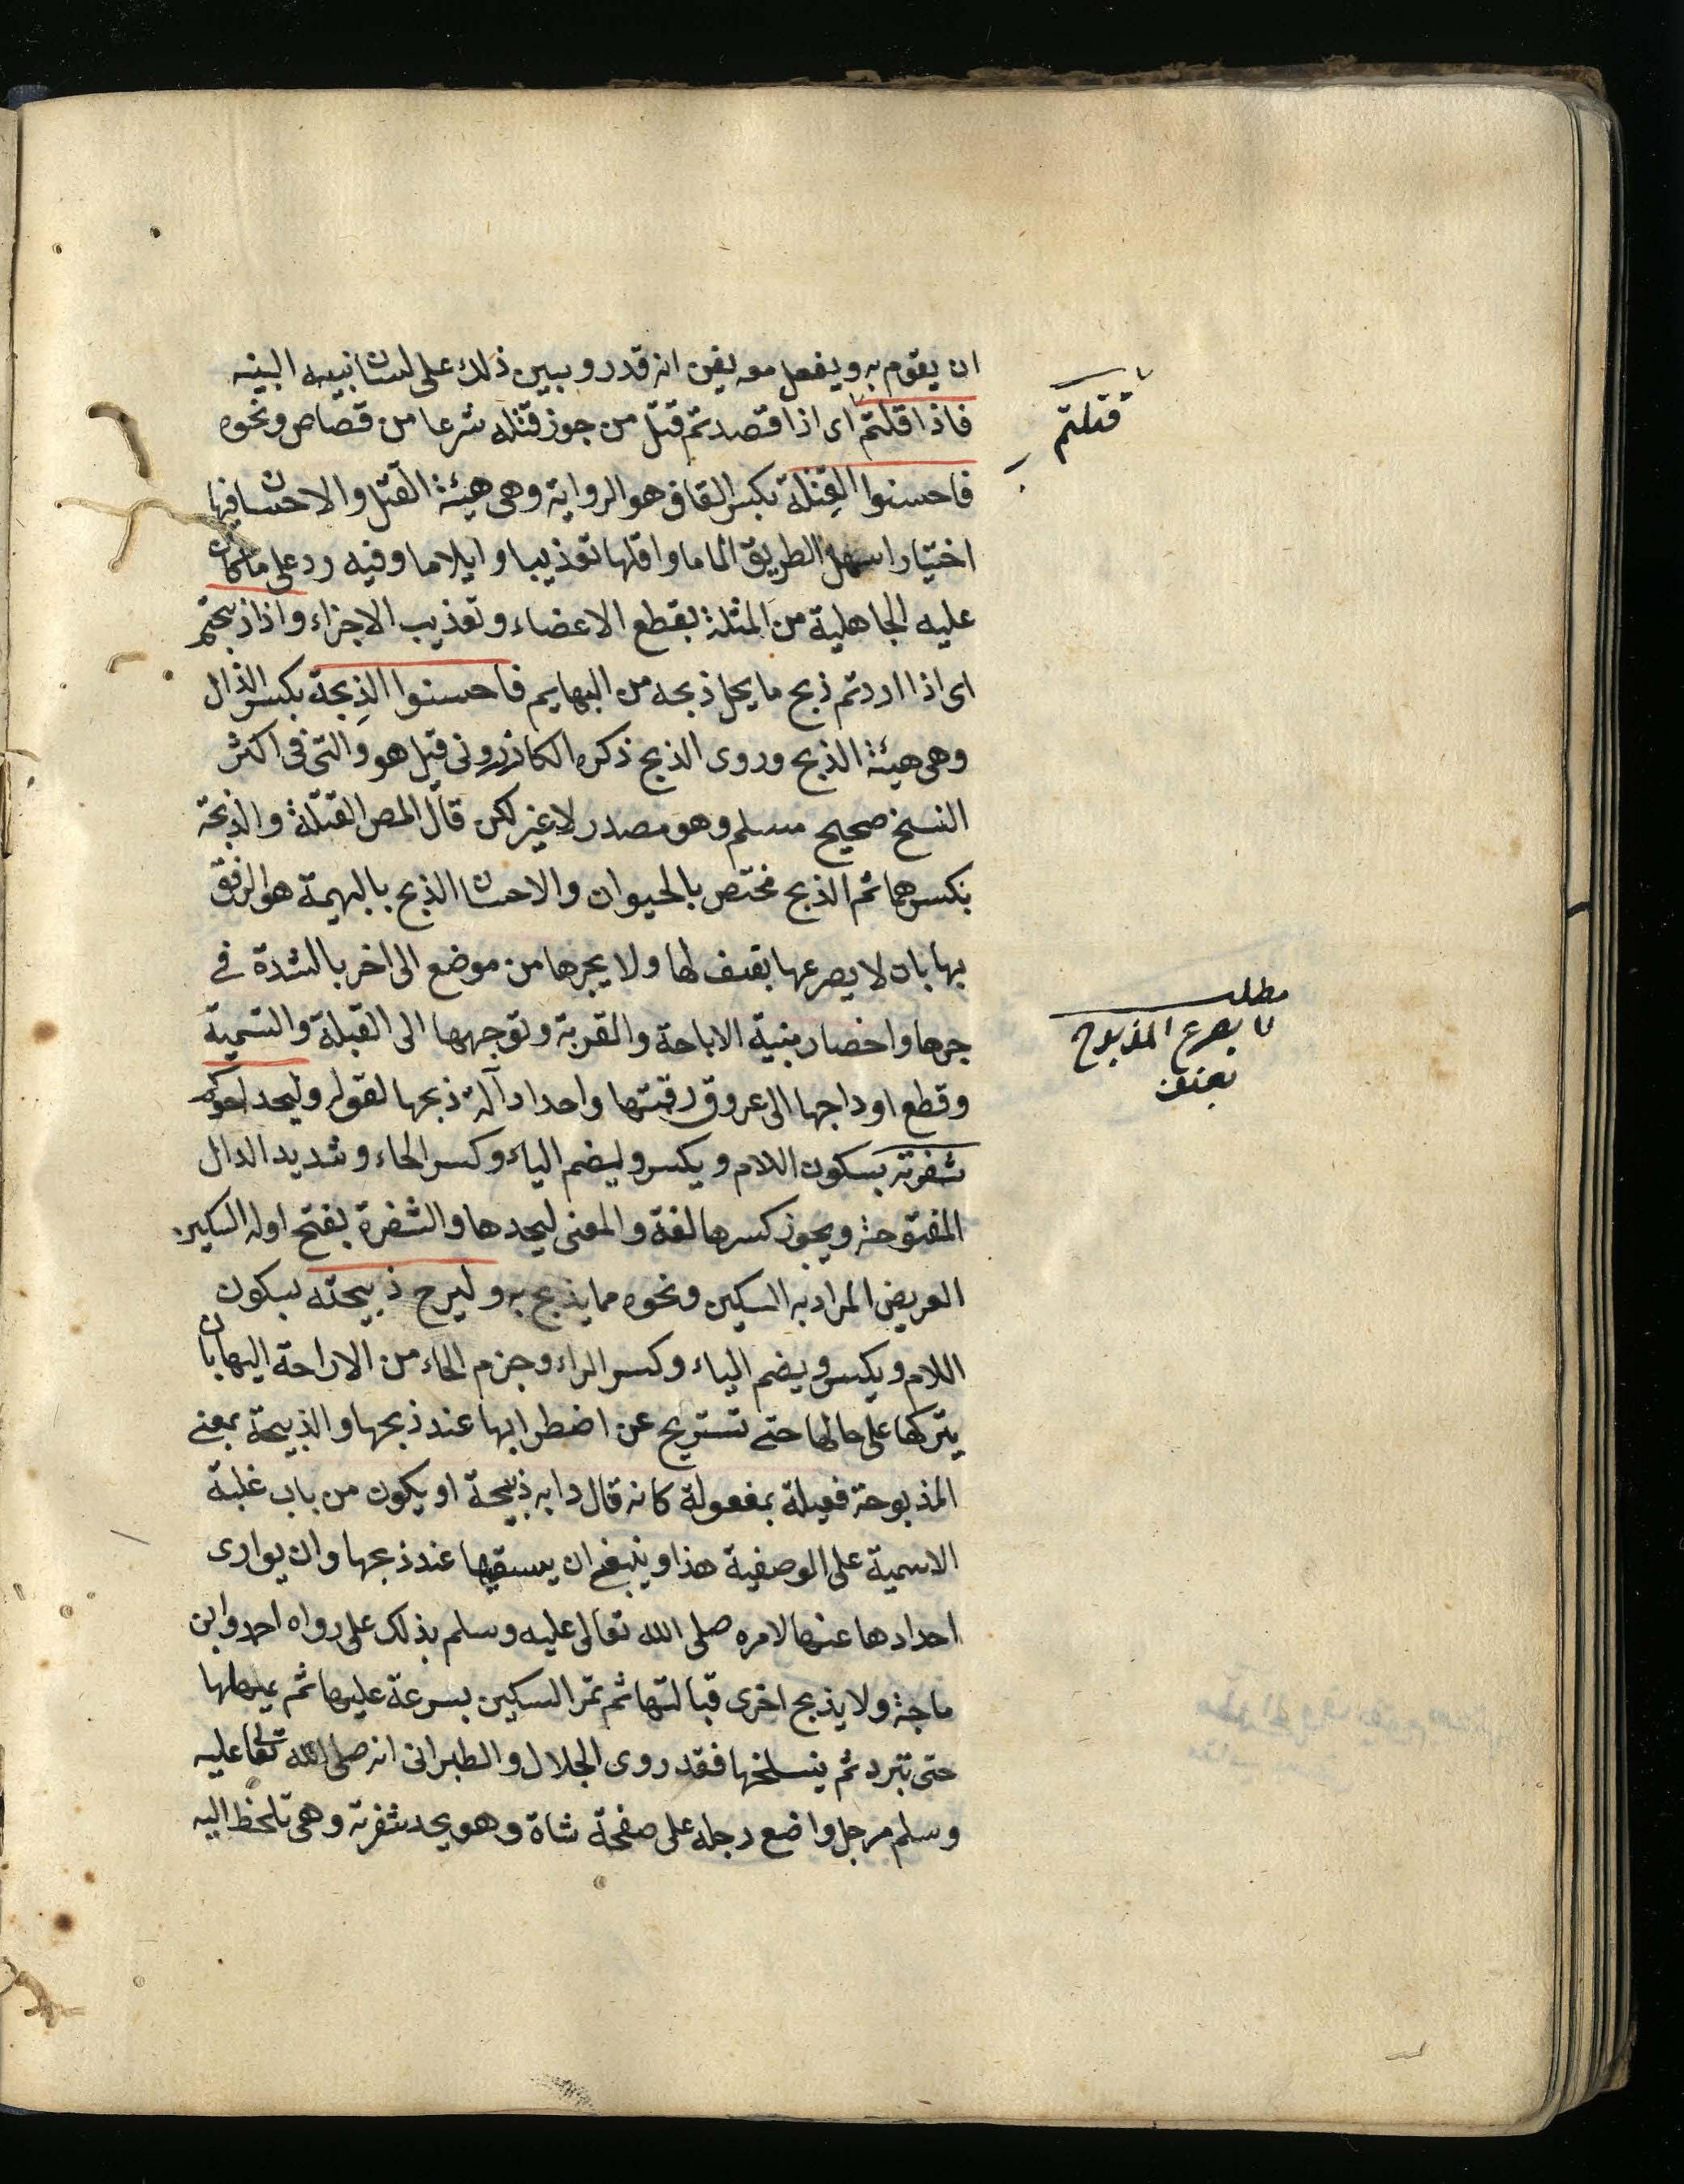 ان يقوم به ويفعل معه يفين انه قدر وبيين ذلك على لسان نبيه البينه
فاذا قلتم اى اذا قصدتم قتل من جوز قتله شرعا من قصاص ونحوه
قتلتم
فاحسنوا القِتلة بكسر القاف هو الرواية وهى هيئة القتل والاحسان فيها
اختيار اسهل الطريق الماما واقلها تعذيبا وايلاما وفيه رد على ما كان
عليه الجاهلية من المثلة بقطع الاعضاء وتعذيب الاجزاء واذا ذبحتم
اى اذا اردتم ذبح ما يحل ذبحه من البهايم فاحسنوا الذِبحة بكسر الذال
وهى هيئة الذبح وروى الذبح ذكره الكازرونى قيل هو والتى فى اكثر
النسخ صحيح مسلم وهو مصدر لا غير لكن قال المص القتلة والذبحة
بكسرهما ثم الذبح مختص بالحيوان والاحسان الذبح بالبهيمة هو الرفق
بها بان لا يصرعها بعنف لها ولا يجرها من موضع الى اخر بالشدة فى
مطلب
لا يصرع المذبوح
بعنف
جرها واحضار بنية الاباحة والقربة وتوجهها الى القبلة والتسمية
وقطع اوداجها الى عروق رقبتها واحداد آلة ذبحها لقوله وليحد احدكم
شفرته بسكون اللام ويكسر وليضم الياء وكسر الحاء وشديد الدال
المفتوحة ويجوز كسرها لغة والمعنى ليحدها والشفرة بفتح اوله السكين
العريض المراد به السكين ونحوه مما يذبح به وليرح ذبيحته بسكون
اللام ويكسر ويضم الياء وكسر الراء وجزم الحاء من الاراحة اليها بان
يتركها على حالها حتى تستريح عن اضطرابها عند ذبحها والذبيحة بمعنى
المذبوحة فعيلة بمفعولة كانه قال دابه ذبيحة او يكون من باب غلبة
الاسمية على الوصفية هذا وينبغى ان يسقيها عند ذبحها وان يوارى
احدادها عنها لامره صلى الله تعالى عليه وسلم بذلك على رواه احمد وابن
ماجة ولا يذبح اخرى قبالتها ثم تمر السكين بسرعة عليها ثم يمهلها
حتى تبرد ثم ينسلخها فقد روى الجلال والطبرانى انه صلى الله تعالى عليه
وسلم مر برجل واضع رجله على صفحة شاة وهو يحد شفرته وهى تلحظ اليه